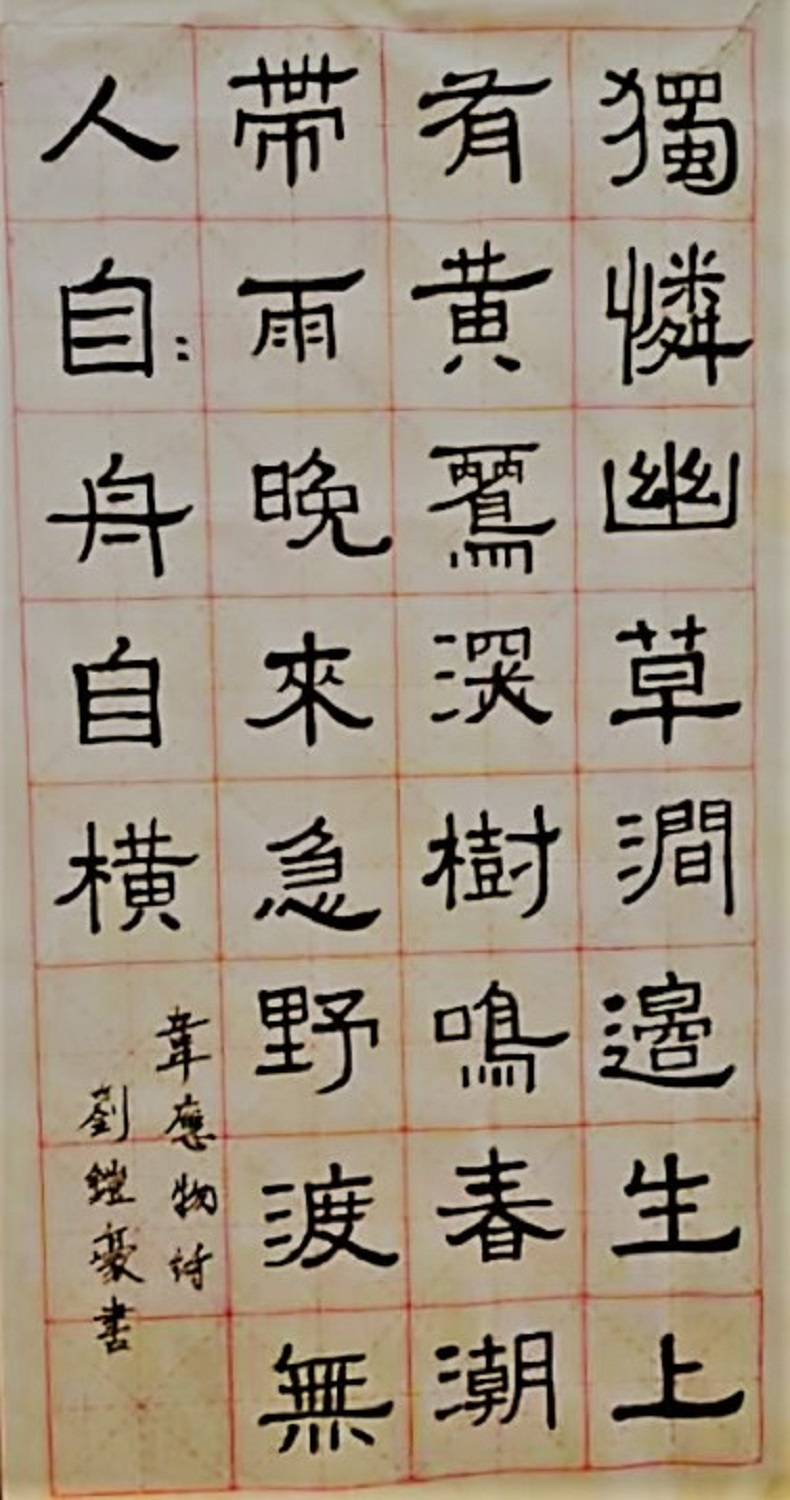 獨憐幽草澗邊生上
有黄鸝深樹鳴春潮
帶雨晚來急野渡無
人自:舟自橫
韋應物詩
劉鎧豪書